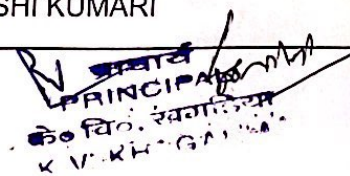 SHI KUMARI
प्राचार्य
PRINCIPAL
के० वि०. खगड़िया
K V KHAGARIA